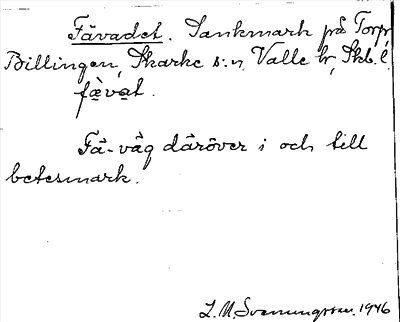 Fävadet. Sankmark på Torp,
Billingen, Skarke s:n, Valle hr, Skb. l.
fä̀vat.
Fä-väg däröver i och till
betesmark.
L. M. Svenungsson. 1946